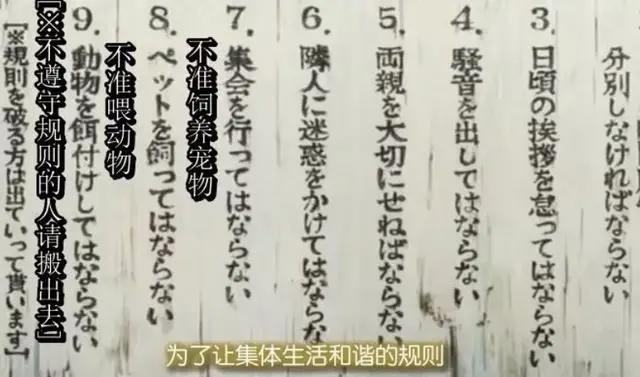 分別しなければならない
3.日頃の挨拶を怠ってはならない
4.騒音を出してはならない
5.両親を大切にせねばならない
6.隣人に迷惑をかけてはならない
7.集会を行ってはならない
不准饲养宠物
8.ペットを飼ってはならない
不准喂动物
9.動物を餌付けしてはならない
[※不遵守规则的人请搬出去]
[※規則を破る方は出ていって貰います]
为了让集体生活和谐的规则